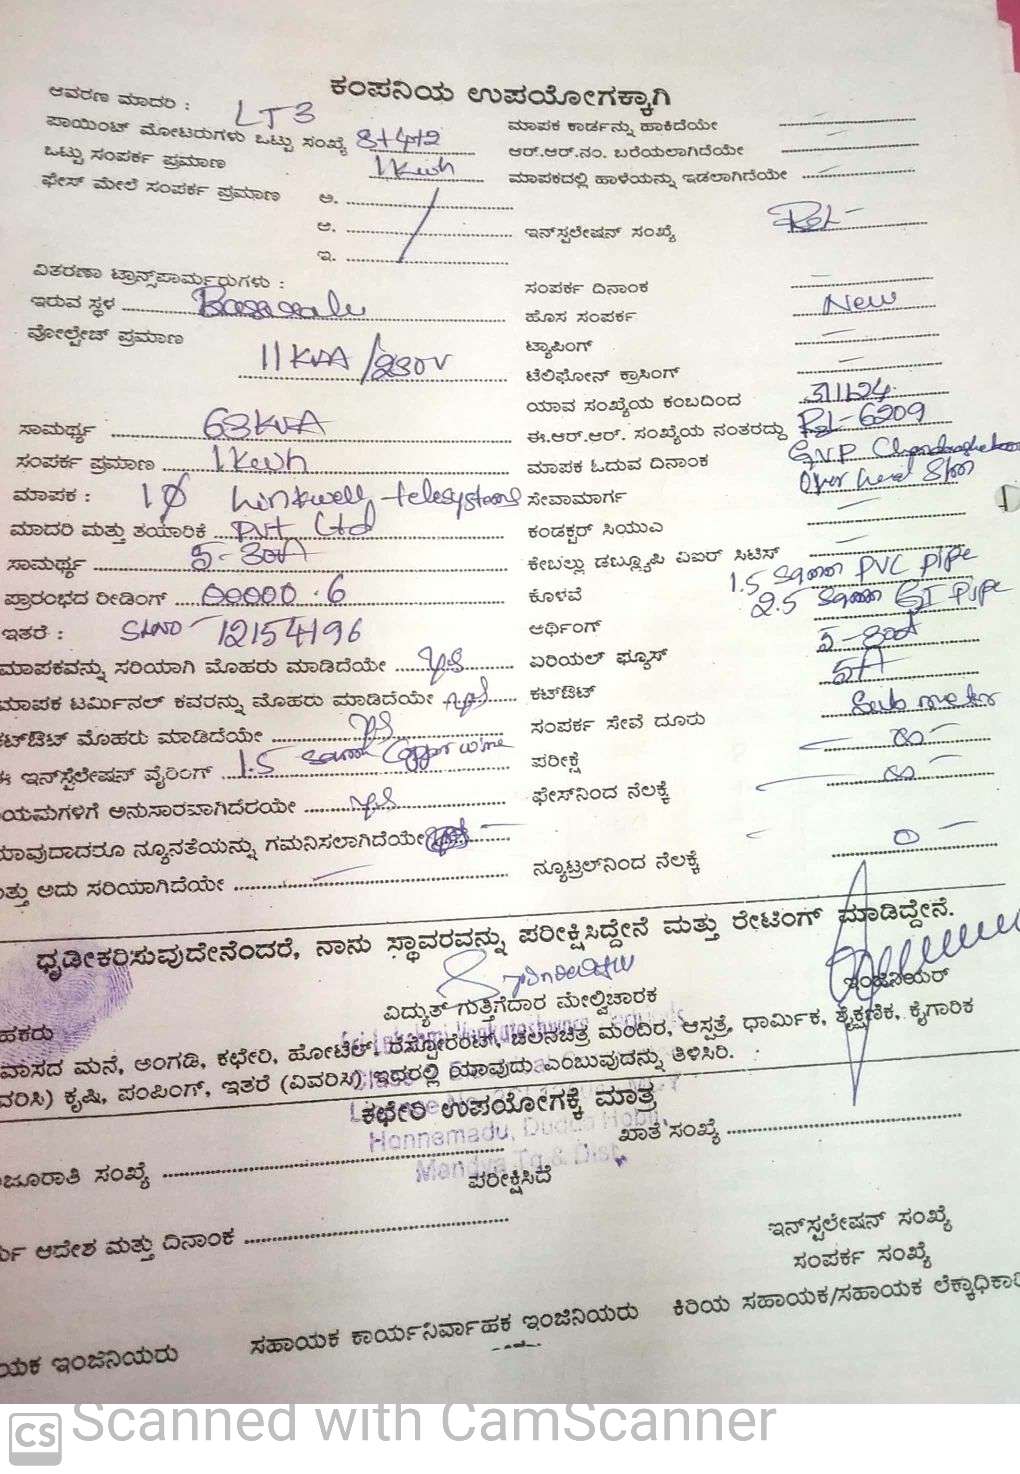 ಕಂಪನಿಯ ಉಪಯೋಗಕ್ಕಾಗಿ
ಆವರಣ ಮಾದರಿ : LT3
ಪಾಯಿಂಟ್ ಮೋಟರುಗಳು ಒಟ್ಟು ಸಂಖ್ಯೆ 8+4+2
ಮಾಪಕ ಕಾರ್ಡನ್ನು ಹಾಕಿದೆಯೇ
ಒಟ್ಟು ಸಂಪರ್ಕ ಪ್ರಮಾಣ 1 Kwh
ಆರ್.ಆರ್.ನಂ. ಬರೆಯಲಾಗಿದೆಯೇ
ಫೇಸ್ ಮೇಲೆ ಸಂಪರ್ಕ ಪ್ರಮಾಣ ಅ.
ಮಾಪಕದಲ್ಲಿ ಹಾಳೆಯನ್ನು ಇಡಲಾಗಿದೆಯೇ
ಆ.
ಇನ್‌ಸ್ಟಲೇಷನ್ ಸಂಖ್ಯೆ
ಇ.
ವಿತರಣಾ ಟ್ರಾನ್ಸ್‌ಪಾರ್ಮರುಗಳು :
ಸಂಪರ್ಕ ದಿನಾಂಕ
ಇರುವ ಸ್ಥಳ
ಹೊಸ ಸಂಪರ್ಕ New
ವೋಲ್ಟೇಚ್ ಪ್ರಮಾಣ 11 KVA/230V
ಟ್ಯಾಪಿಂಗ್
ಟೆಲಿಫೋನ್ ಕ್ರಾಸಿಂಗ್
ಯಾವ ಸಂಖ್ಯೆಯ ಕಂಬದಿಂದ
ಸಾಮರ್ಥ್ಯ 63 KVA
ಈ.ಆರ್.ಆರ್. ಸಂಖ್ಯೆಯ ನಂತರದ್ದು
ಸಂಪರ್ಕ ಪ್ರಮಾಣ 1 Kwh
ಮಾಪಕ ಓದುವ ದಿನಾಂಕ
ಮಾಪಕ : 1Ø Linkwell telesystems
ಸೇವಾಮಾರ್ಗ Over head
ಮಾದರಿ ಮತ್ತು ತಯಾರಿಕೆ Pvt Ltd
ಕಂಡಕ್ಟರ್ ಸಿಯುಎ
ಸಾಮರ್ಥ್ಯ 5-30A
ಕೇಬಲ್ಲು ಡಬ್ಲ್ಯೂಪಿ ವಿಐರ್ ಸಿಟಿಸ್
ಪ್ರಾರಂಭದ ರೀಡಿಂಗ್ 00000.6
ಕೊಳವೆ 1.5 sqmm PVC pipe
ಇತರೆ : SLNO 12154196
ಅರ್ಥಿಂಗ್ 2.5 sqmm GI Pipe
ಮಾಪಕವನ್ನು ಸರಿಯಾಗಿ ಮೊಹರು ಮಾಡಿದೆಯೇ yes
ಏರಿಯಲ್ ಫ್ಯೂಸ್ 5-30A
ಮಾಪಕ ಟರ್ಮಿನಲ್ ಕವರನ್ನು ಮೊಹರು ಮಾಡಿದೆಯೇ yes
ಕಟ್‌ಔಟ್ 5A
ಕಟ್‌ಔಟ್ ಮೊಹರು ಮಾಡಿದೆಯೇ yes
ಸಂಪರ್ಕ ಸೇವೆ ದೂರು Sub meter
ಈ ಇನ್‌ಸ್ಟೆಲೇಷನ್ ವೈರಿಂಗ್ 1.5 sqmm Copper wire
ಪರೀಕ್ಷೆ ∞
ಯಮಗಳಿಗೆ ಅನುಸಾರವಾಗಿದೆರಯೇ yes
ಫೇಸ್‌ನಿಂದ ನೆಲಕ್ಕೆ ∞
ಯಾವುದಾದರೂ ನ್ಯೂನತೆಯನ್ನು ಗಮನಿಸಲಾಗಿದೆಯೇ
ನ್ಯೂಟ್ರಲ್‌ನಿಂದ ನೆಲಕ್ಕೆ 0
ತ್ತು ಅದು ಸರಿಯಾಗಿದೆಯೇ
ಧೃಡೀಕರಿಸುವುದೇನೆಂದರೆ, ನಾನು ಸ್ಥಾವರವನ್ನು ಪರೀಕ್ಷಿಸಿದ್ದೇನೆ ಮತ್ತು ರೇಟಿಂಗ್ ಮಾಡಿದ್ದೇನೆ.
ಹಕರು
ವಿದ್ಯುತ್ ಗುತ್ತಿಗೆದಾರ ಮೇಲ್ವಿಚಾರಕ
ಇಂಜಿನಿಯರ್
ವಾಸದ ಮನೆ, ಅಂಗಡಿ, ಕಛೇರಿ, ಹೋಟೆಲ್, ರೆಸ್ಟೋರೆಂಟ್, ಚಲನಚಿತ್ರ ಮಂದಿರ, ಆಸ್ಪತ್ರೆ, ಧಾರ್ಮಿಕ, ಶೈಕ್ಷಣಿಕ, ಕೈಗಾರಿಕ
ವರಿಸಿ) ಕೃಷಿ, ಪಂಪಿಂಗ್, ಇತರೆ (ವಿವರಿಸಿ) ಇದರಲ್ಲಿ ಯಾವುದು ಎಂಬುವುದನ್ನು ತಿಳಿಸಿರಿ.
ಕಛೇರಿ ಉಪಯೋಗಕ್ಕೆ ಮಾತ್ರ
Honnamadu, Dudda Hobli,
Mandya Tq & Dist
ಜೂರಾತಿ ಸಂಖ್ಯೆ
ಖಾತೆ ಸಂಖ್ಯೆ
ಪರೀಕ್ಷಿಸಿದೆ
ಆದೇಶ ಮತ್ತು ದಿನಾಂಕ
ಇನ್‌ಸ್ಟಲೇಷನ್ ಸಂಖ್ಯೆ
ಸಂಪರ್ಕ ಸಂಖ್ಯೆ
ಯಕ ಇಂಜಿನಿಯರು
ಸಹಾಯಕ ಕಾರ್ಯನಿರ್ವಾಹಕ ಇಂಜಿನಿಯರು
ಕಿರಿಯ ಸಹಾಯಕ/ಸಹಾಯಕ ಲೆಕ್ಕಾಧಿಕಾರಿ
CS Scanned with CamScanner